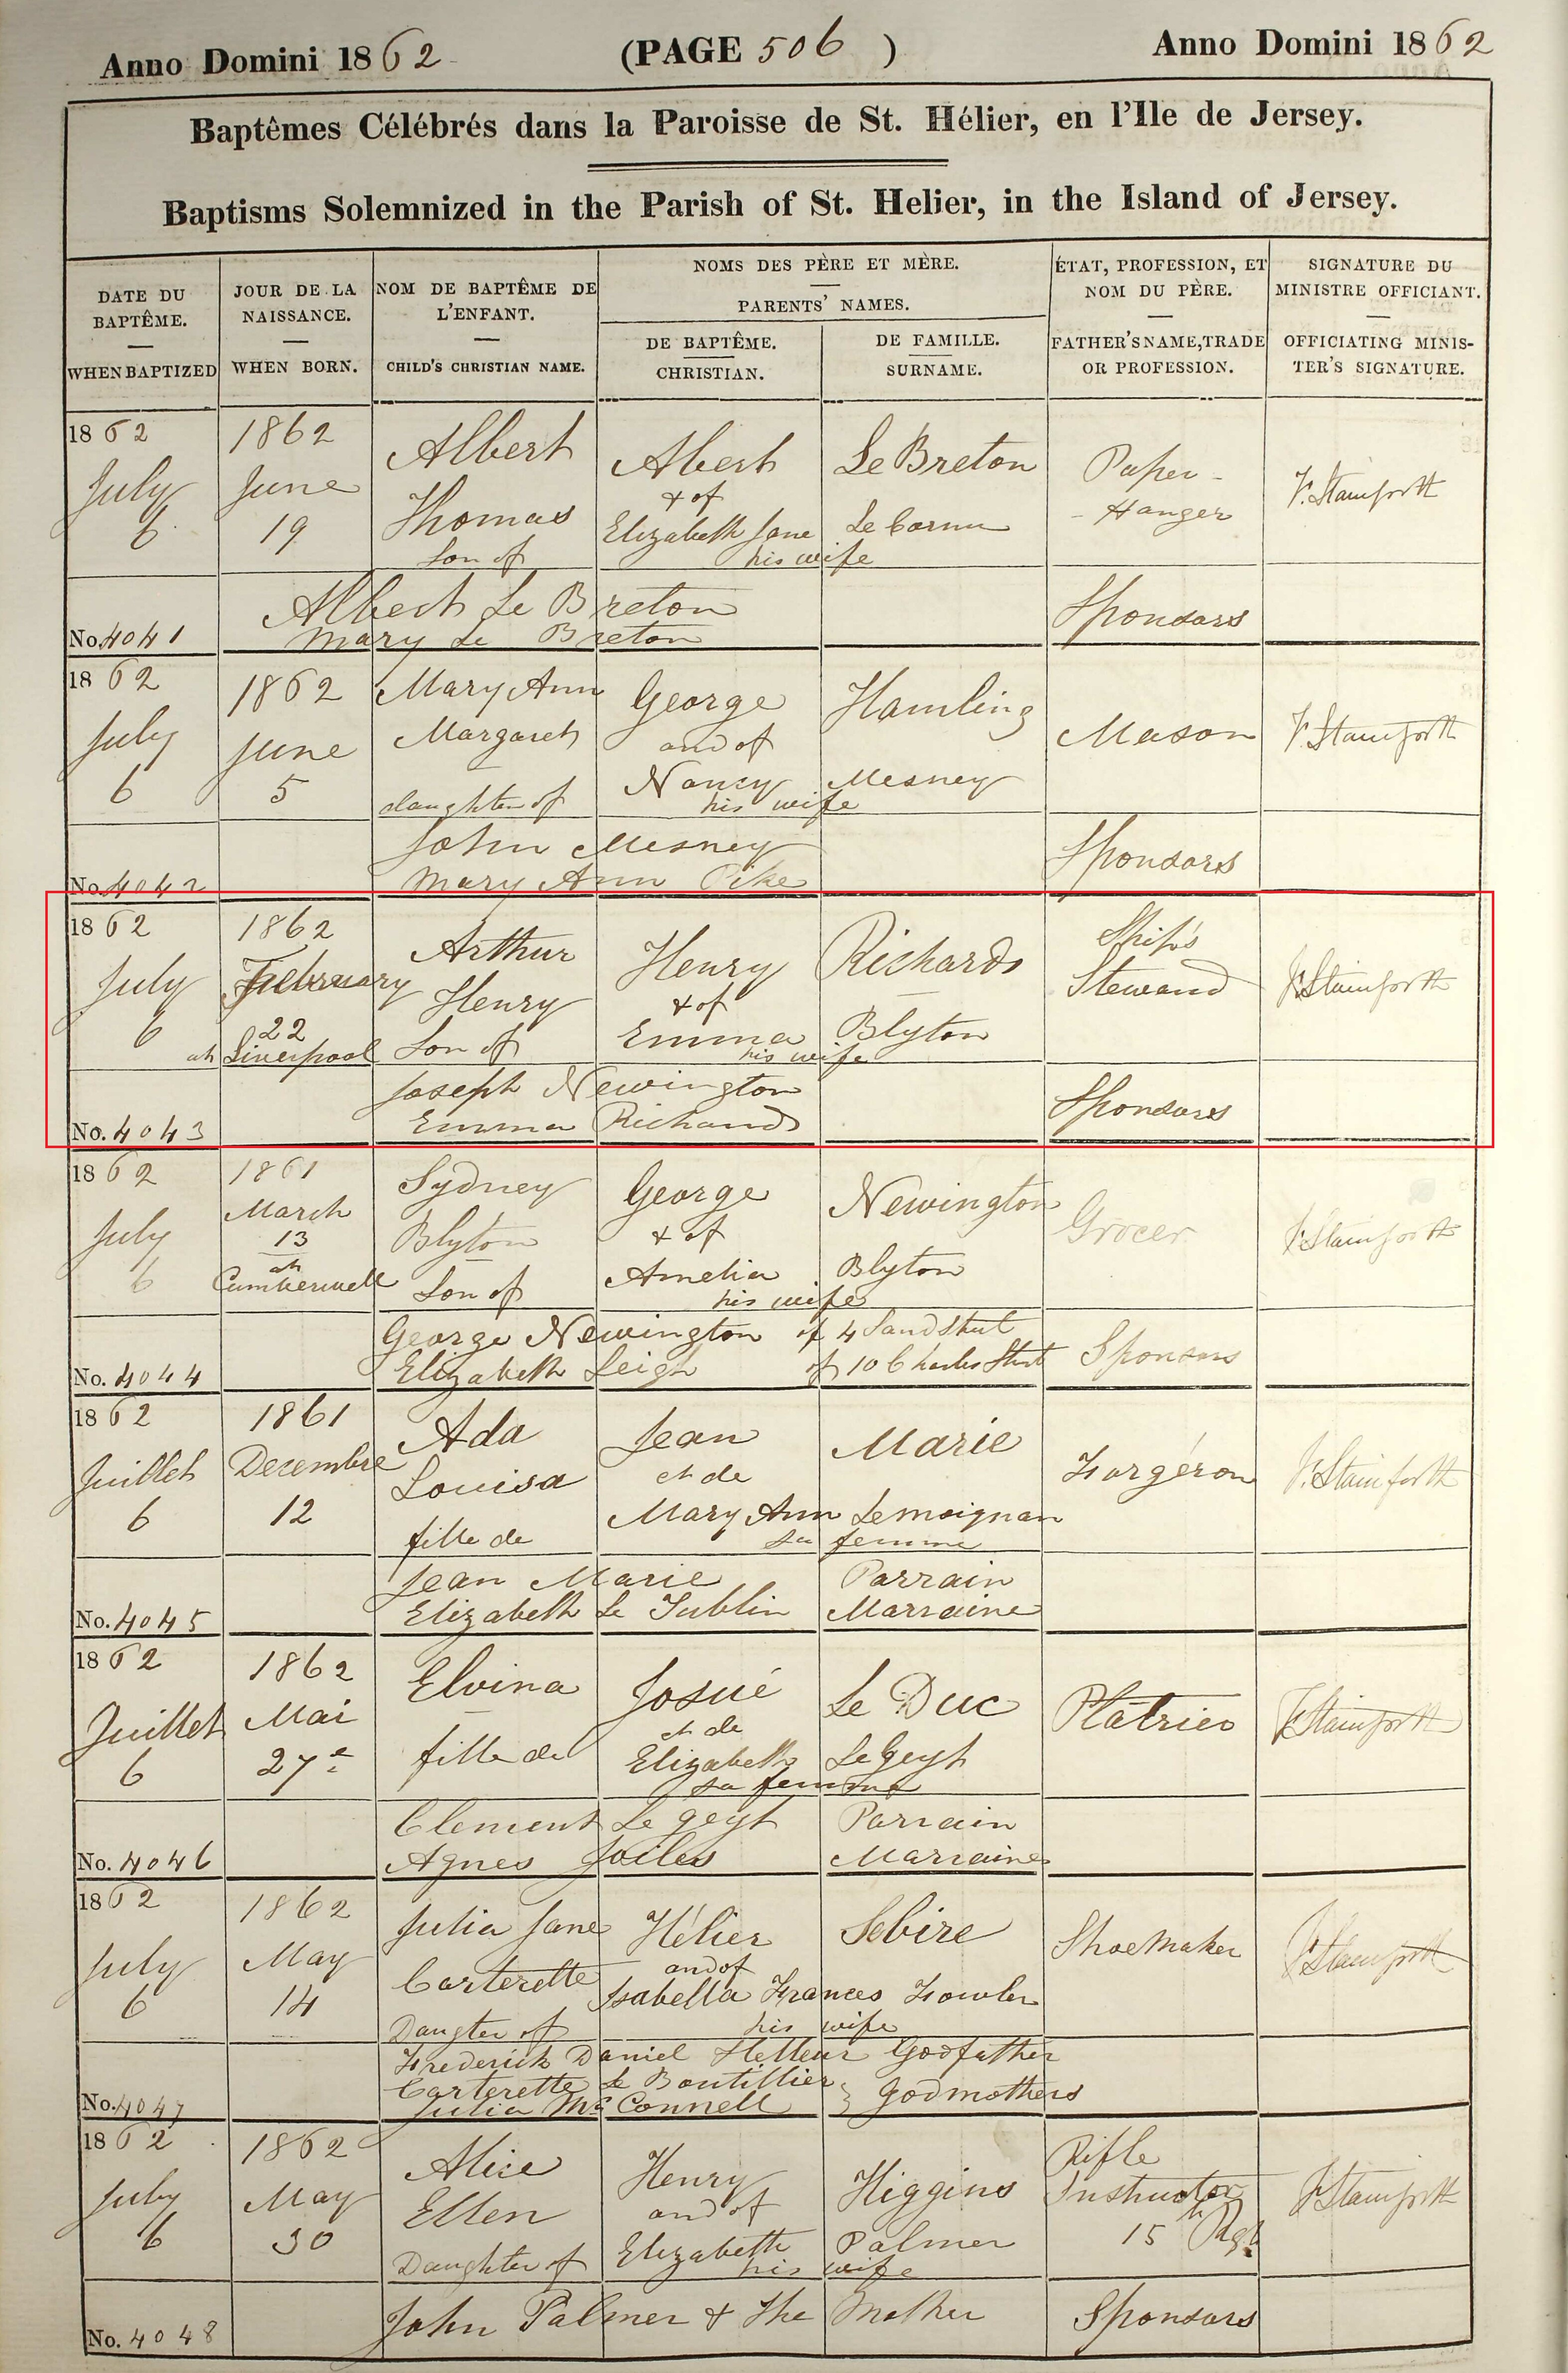 Anno Domini 1862 (PAGE 506) Anno Domini 1862
Baptêmes Célébrés dans la Paroisse de St. Hélier, en l'Ile de Jersey.
Baptisms Solemnized in the Parish of St. Helier, in the Island of Jersey.
DATE DU BAPTÊME. — WHEN BAPTIZED
JOUR DE LA NAISSANCE. — WHEN BORN.
NOM DE BAPTÊME DE L'ENFANT. — CHILD'S CHRISTIAN NAME.
NOMS DES PÈRE ET MÈRE. — PARENTS' NAMES.
DE BAPTÊME. CHRISTIAN.
DE FAMILLE. SURNAME.
ÉTAT, PROFESSION, ET NOM DU PÈRE. — FATHER'S NAME, TRADE OR PROFESSION.
SIGNATURE DU MINISTRE OFFICIANT. — OFFICIATING MINISTER'S SIGNATURE.
1862 July 6
1862 June 19
Albert Thomas Son of
Albert & of Elizabeth Jane his wife
Le Breton Le Cornu
Paper-Hanger
F. Stainforth
Albert Le Breton
Mary Le Breton
Sponsors
No. 4041
1862 July 6
1862 June 5
Mary Ann Margaret daughter of
George and of Nancy his wife
Hamling Mesney
Mason
F. Stainforth
John Mesney
Mary Ann Pike
Sponsors
No. 4042
1862 July 6
1862 February 22 at Liverpool
Arthur Henry Son of
Henry & of Emma his wife
Richards Blyton
Ship's Steward
F. Stainforth
Joseph Newington
Emma Richards
Sponsors
No. 4043
1862 July 6
1861 March 13 at Cumberwell
Sydney Blyton Son of
George & of Amelia his wife
Newington Blyton
Grocer
F. Stainforth
George Newington of 4 Sand Street
Elizabeth Leigh of 10 Charles Street
Sponsors
No. 4044
1862 Juillet 6
1861 Decembre 12
Ada Louisa fille de
Jean et de Mary Ann sa femme
Marie Lemoignan
Forgéron
F. Stainforth
Jean Marie Parrain
Elizabeth Le Marraine
No. 4045
1862 Juillet 6
1862 Mai 27e
Elvina fille de
Josué et de Elizabeth sa femme
Le Duc Le Geyt
Platrier
F. Stainforth
Clement Le geyt Parrain
Agnes Marraine
No. 4046
1862 July 6
1862 May 14
Julia Jane Carterette Daugter of
Hélier and of Isabella Frances his wife
Sebire Fowler
Shoemaker
F. Stainforth
Frederick Daniel Helleur Godfather
Carterette Le Boutillier
Julia Mc Connell } Godmothers
No. 4047
1862 July 6
1862 May 30
Alice Ellen Daughter of
Henry and of Elizabeth his wife
Higgins Palmer
Rifle Instructor 15th Regt
F. Stainforth
John Palmer & the Mother
Sponsors
No. 4048